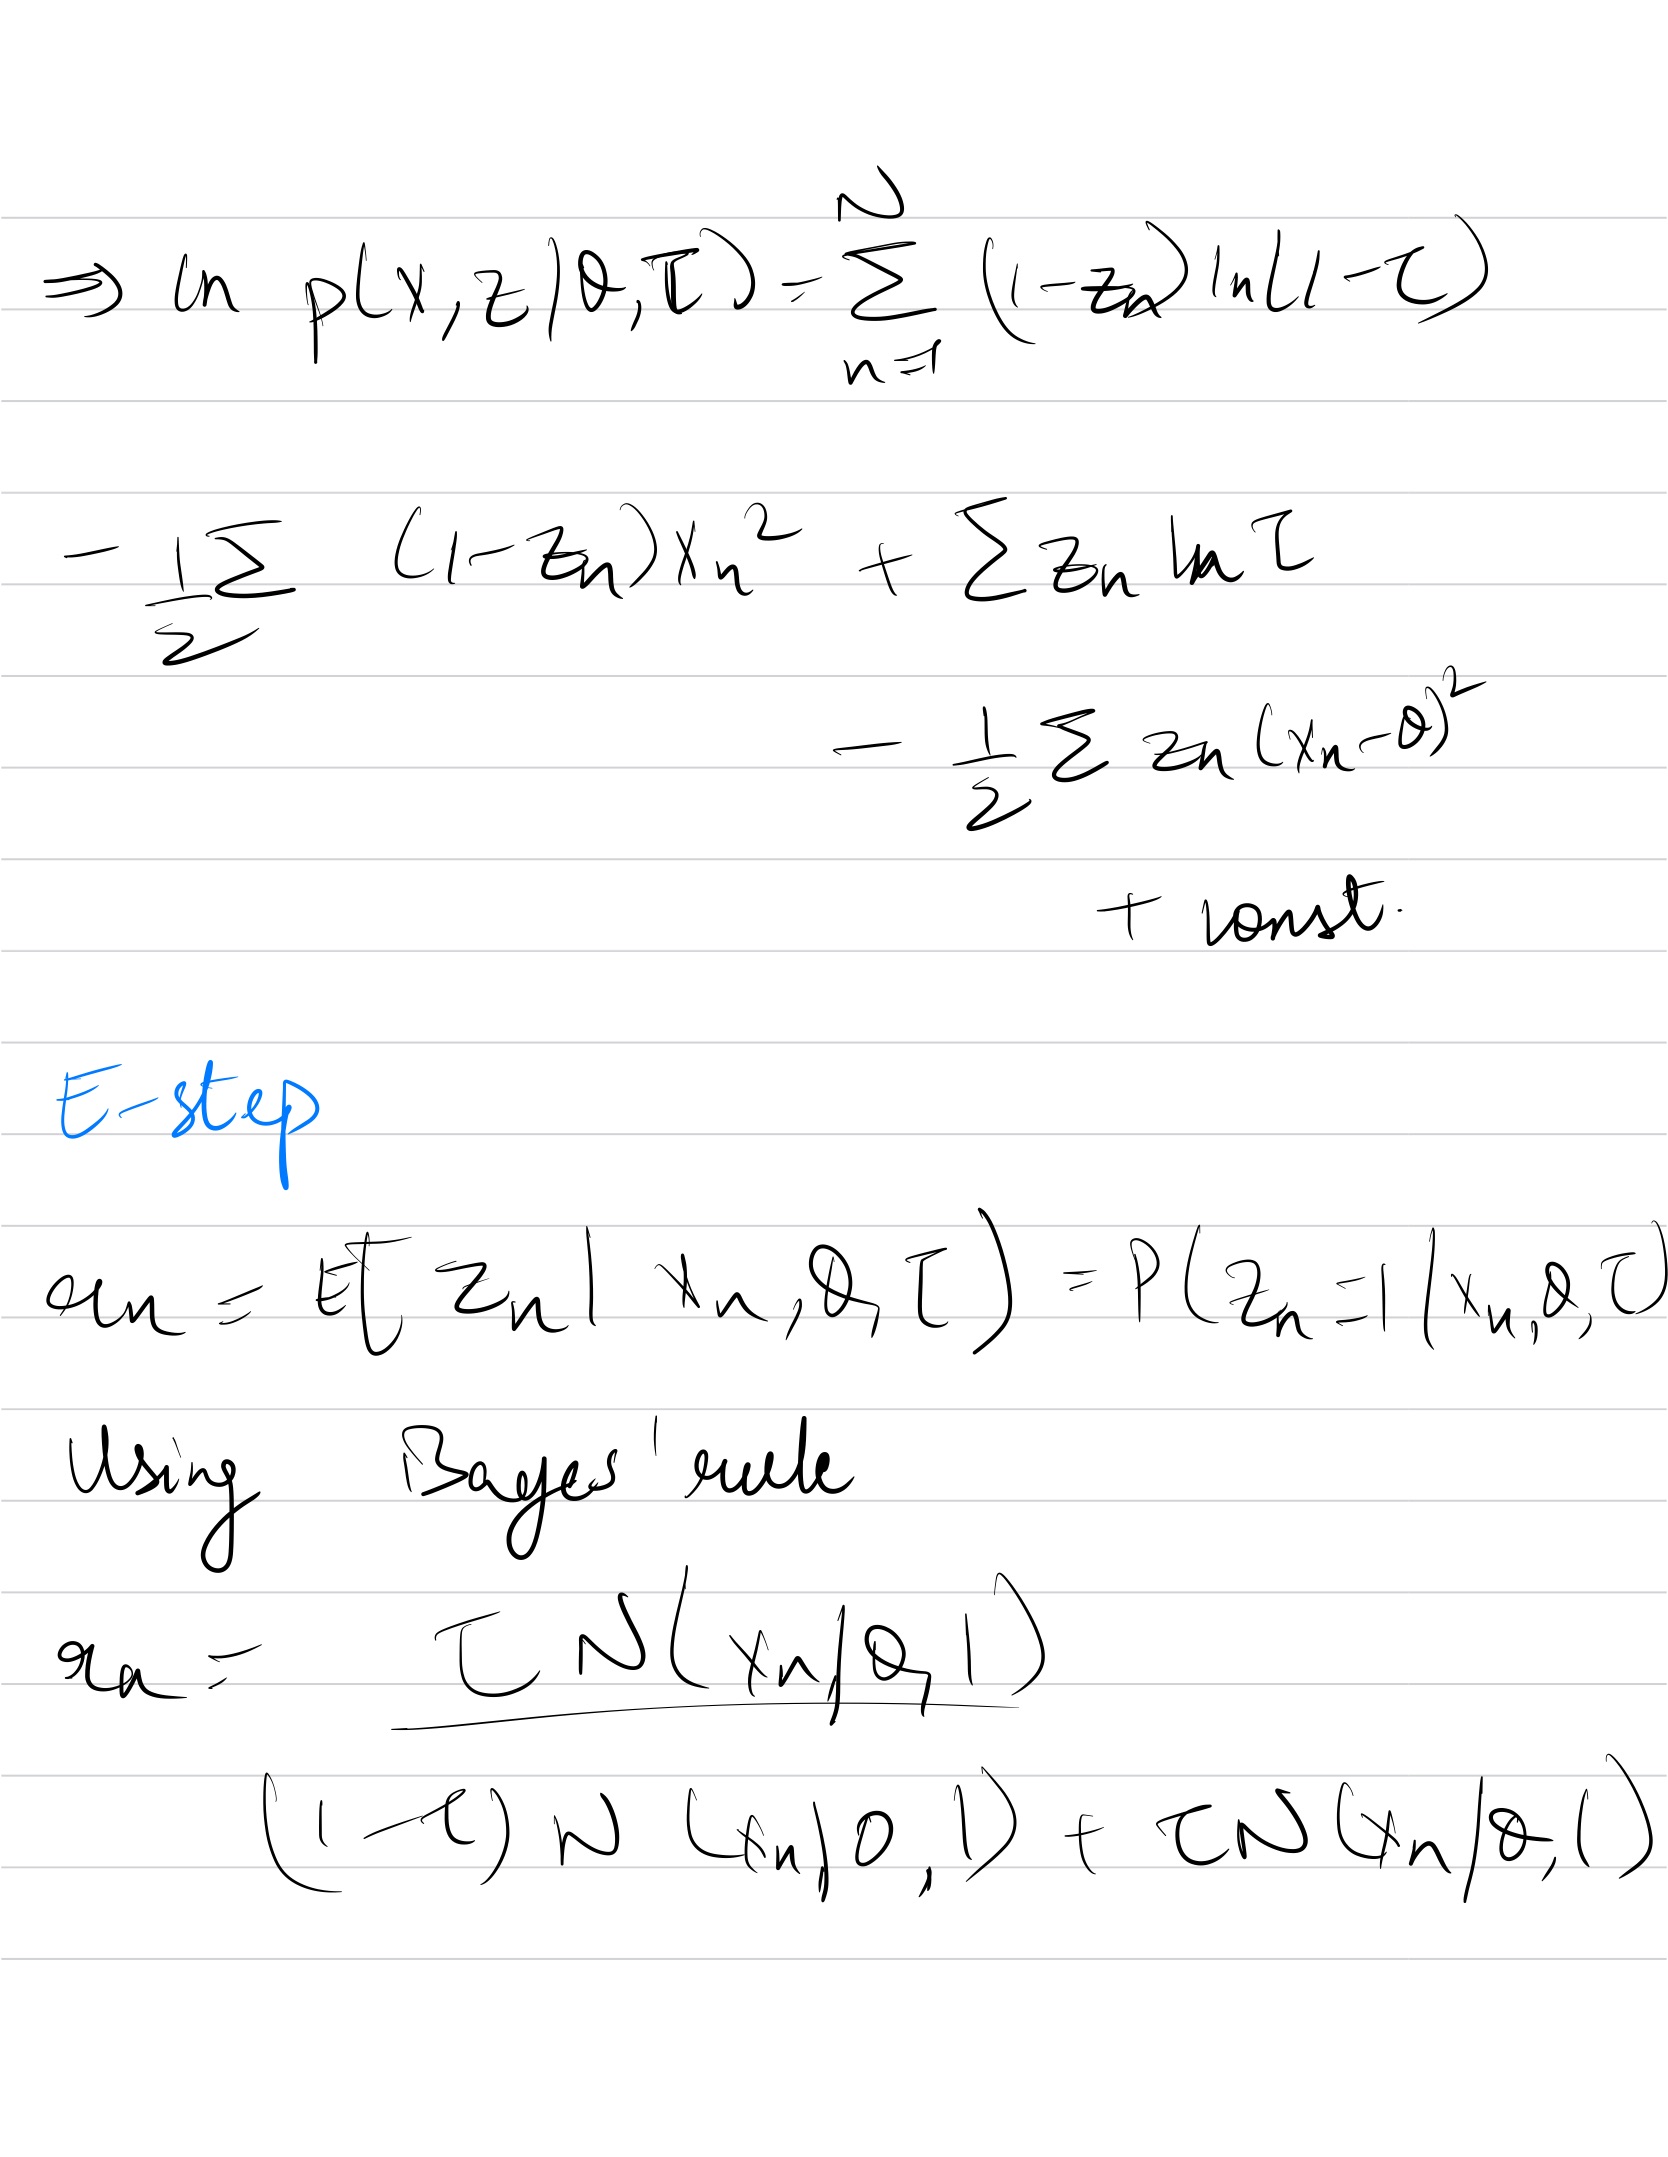 ⇒ ln p(x, z | θ, τ) = Σ_{n=1}^{N} (1-zn) ln(1-τ)
- 1/2 Σ (1-zn) xn² + Σ zn ln τ
- 1/2 Σ zn (xn-θ)²
+ const.
E-step
rn = E[zn | xn, θ, τ) = P(zn=1 | xn, θ, τ)
Using Bayes' rule
rn = τ N(xn | θ, 1)
(1-τ) N (xn | 0, 1) + τ N(xn | θ, 1)